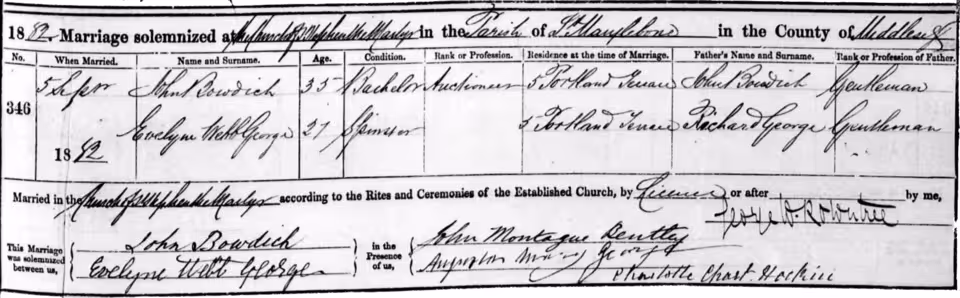 1882. Marriage solemnized at the Church of St Stephen the Martyr in the Parish of St Marylebone in the County of Middlesex
No. When Married. Name and Surname. Age. Condition. Rank or Profession. Residence at the time of Marriage. Father's Name and Surname. Rank or Profession of Father.
346 5 Septr John Bowdich 35 Bachelor Auctioneer 5 Portland Terrace John Bowdich Gentleman
1882 Evelyne Webb George 27 Spinster 5 Portland Terrace Richard George Gentleman
Married in the Church of St Stephen the Martyr according to the Rites and Ceremonies of the Established Church, by Licence or after by me,
George D. Rowntree
This Marriage was solemnized between us,
John Bowdich
Evelyne Webb George
in the Presence of us,
John Montague Bentley
George
Charlotte Hoskin